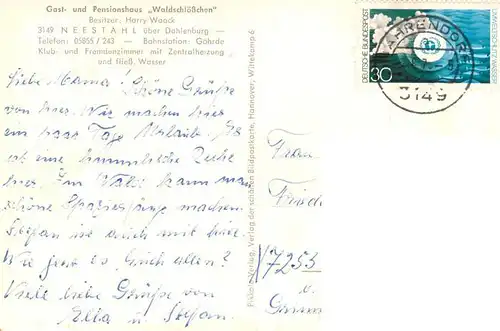 Gast- und Pensionshaus „Waldschlößchen"
Besitzer: Harry Waack
3149 NEESTAHL über Dahlenburg —
Telefon: 05855 / 243 — Bahnstation: Göhrde
Klub- und Fremdenzimmer mit Zentralheizung
und fließ. Wasser
Liebe Mama! Schöne Grüße
von hier. Wir machen hier
ein paar Tage Urlaub. Es
ist eine himmlische Ruhe
hier. Im Wald kann man
schöne Spaziergänge machen.
Stefan ist auch mit hier.
Wie geht es Euch allen?
Viele liebe Grüße von
Ella u. Stefan.
Verlag der schönen Bildpostkarte, Hannover, Wittekamp 6
DEUTSCHE BUNDESPOST
30
AHRENDORF
3149
Frau
Fried
7253